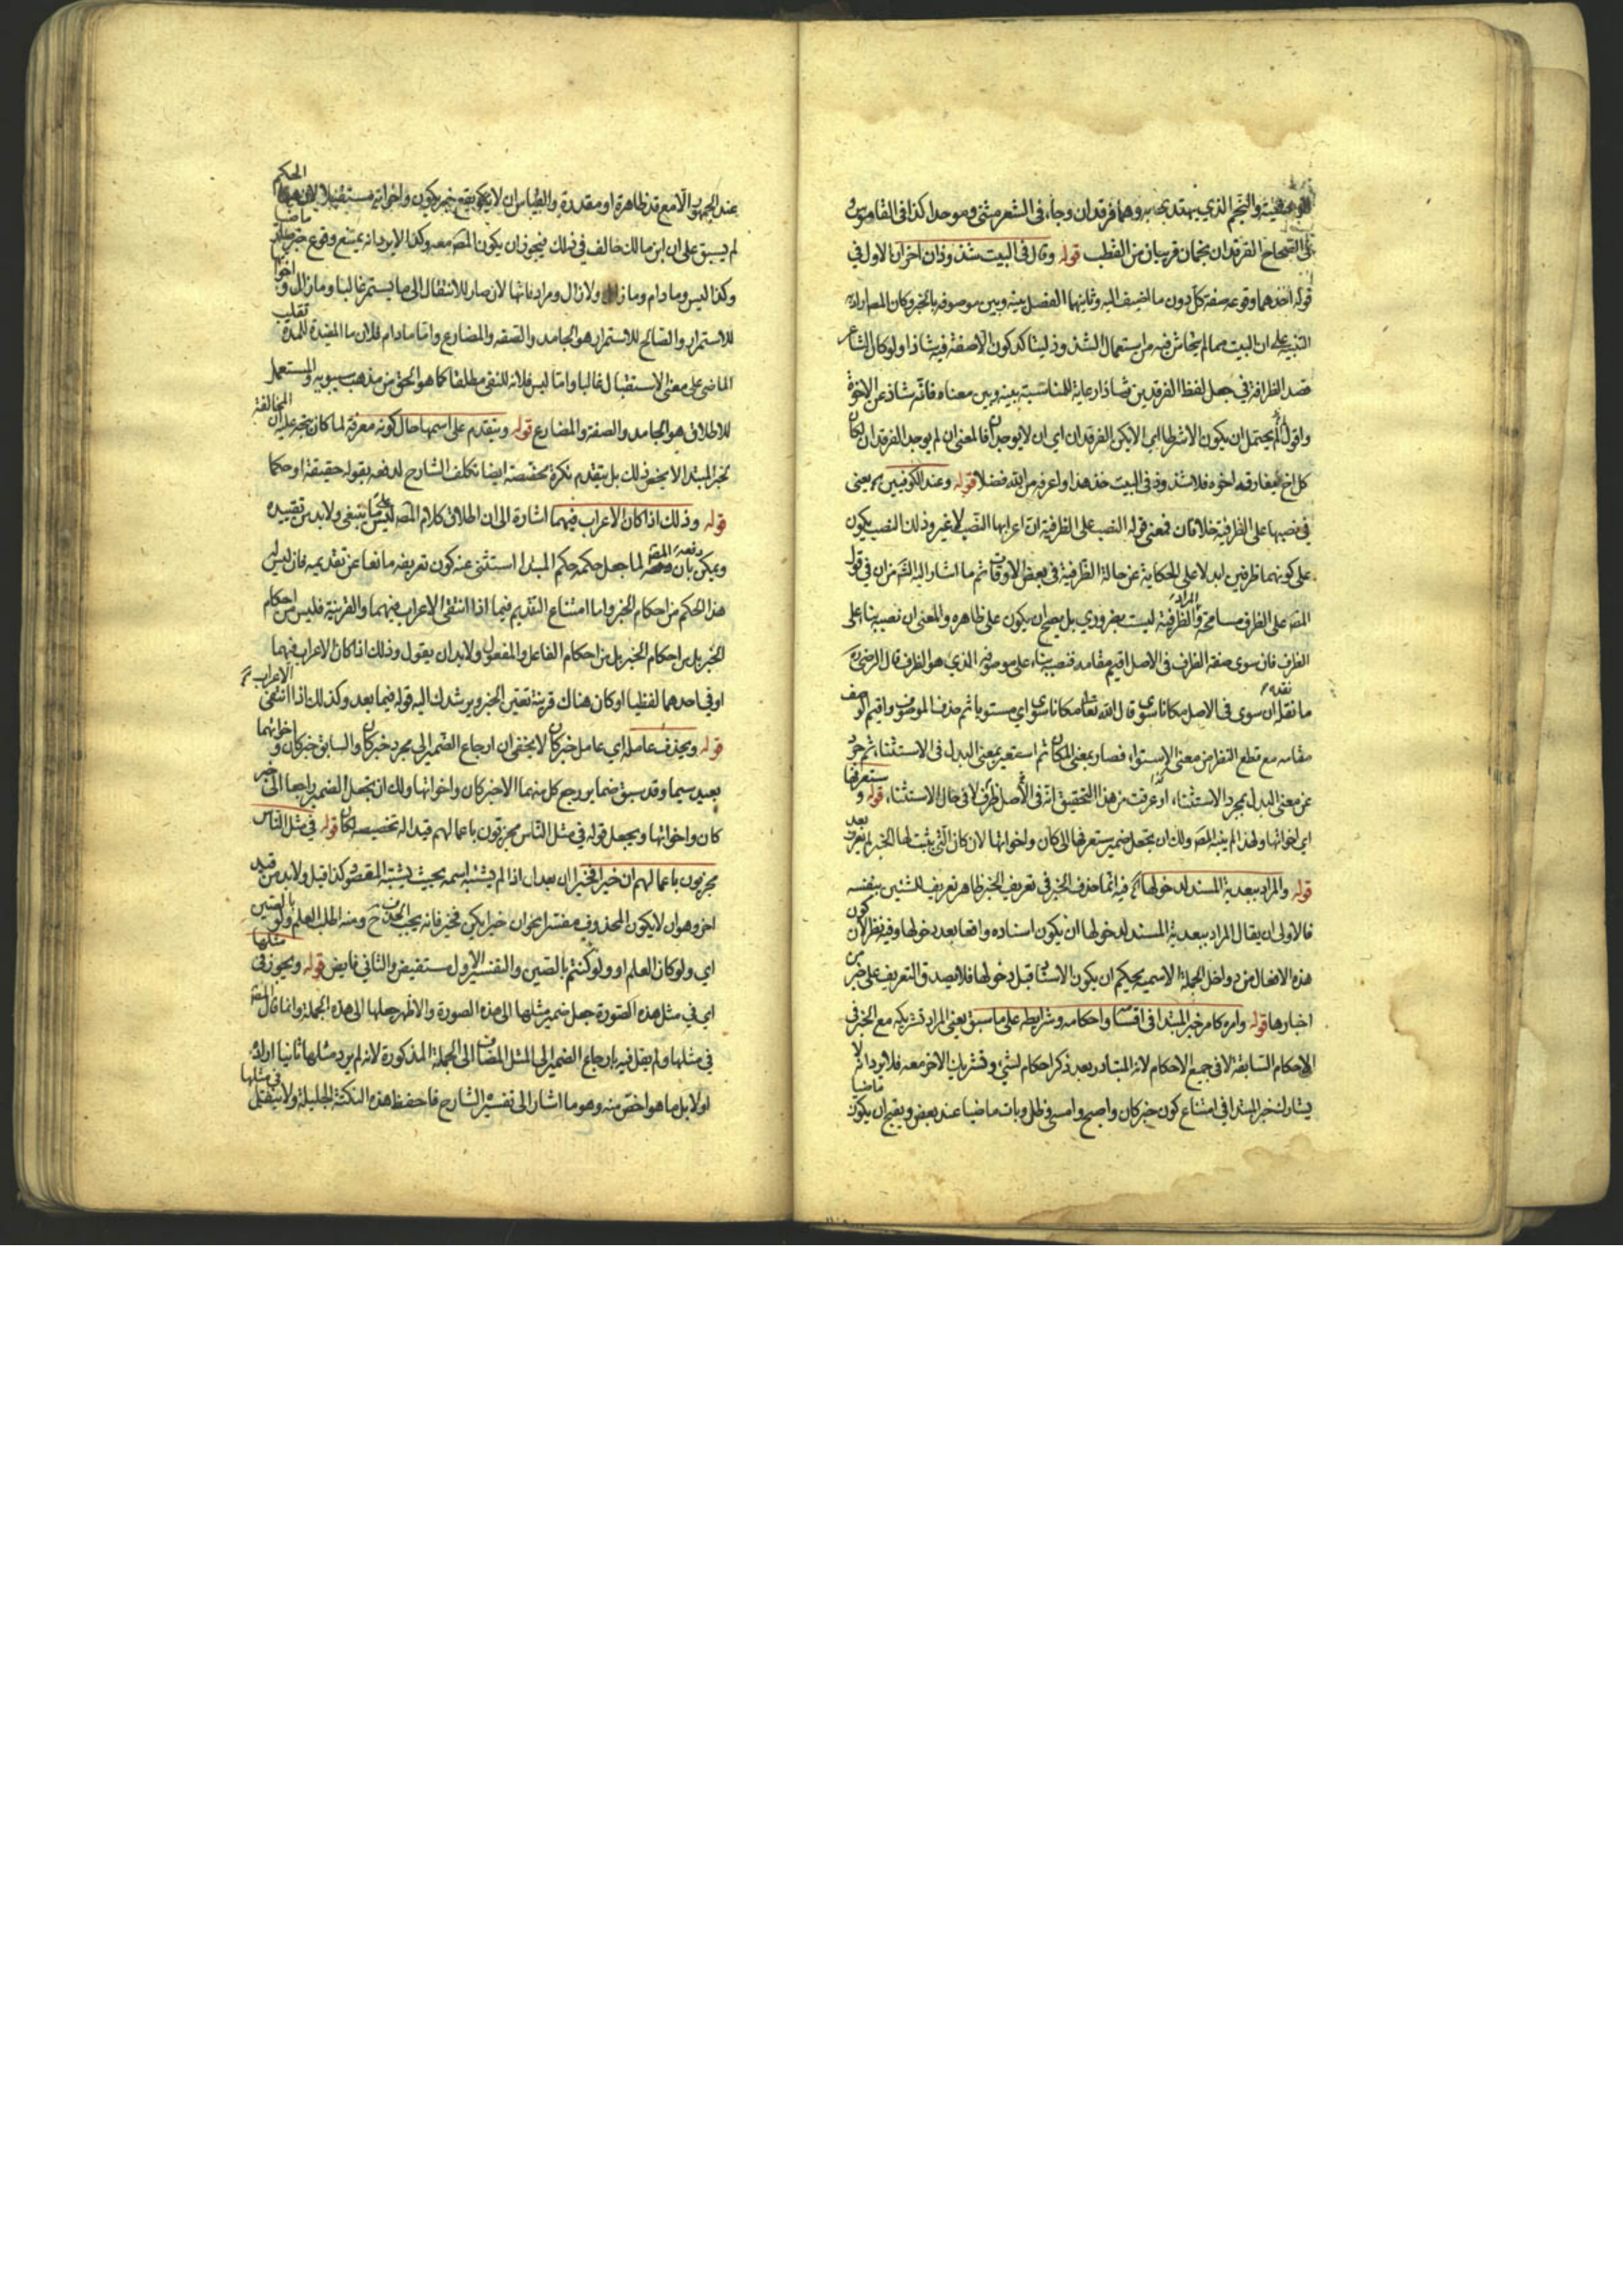 والنجم الذي يهتدى به وهما فرقدان وجاء في الشعر مثنى وموحدا كذا في القاموس و
في الصحاح الفرقدان نجمان قريبان من القطب قوله وقال في البيت شذوذان اخران الاول في
قوله احدهما وقوعه صفة كل دون ما اضيف اليه وثانيهما الفصل بينه وبين موصوفه بالخبر وكان المص اراد
التنبيه على ان البيت مما لم يتحاش فيه من استعمال الشذوذ ليتأكد كون الا صفة فيه شاذا ولو كان الشاعر
قصد الظرافة في جعل لفظ الفرقدين شاذا رعاية للمناسبة بينه وبين معناه فانه شاذ عن الاخوة
واقول يحتمل ان يكون الا شرطا اي الا يكن الفرقدان اي ان لا يوجدا فالمعنى ان لم يوجد الفرقدان لكان
كل اخ مفارقه اخوه فلا شذوذ في البيت خذ هذا واعرفه من الله فضلا قوله وعند الكوفيين يعنى
في نصبها على الظرفية خلافا فان فمعنى قوله النصب على الظرفية ان اعرابها النصب لا غير وذلك النصب يكون
على كونهما ظرفين ابدا لا على الحكاية عن حالة الظرفية في بعض الاوقات ثم ما اشار اليه الشم من ان في قول
المص على الظرف مسامحة والظرفية ليست بضروري بل يصح ان يكون على ظاهره والمعنى ان نصبه بناء على
الظرف فان سوى صفة الظرف في الاصل اقيم مقامه فنصبه بناء على موصوفه الذي هو الظرف قال الرضي
ما نقله ان سوى في الاصل مكانا سوى قال الله تعا مكانا سوى اي مستويا ثم حذف الموصوف واقيم الوصف
مقامه مع قطع النظر من معنى الاستواء فصار بمعنى المكان ثم استعير بمعنى البدل في الاستثناء ثم جرد
عن معنى البدل بمجرد الاستثناء اذ عرفت من هذا التحقيق انه في الاصل ظرف لا في حال الاستثناء قوله و ستعرفها
اي اخواتها ولهذا لم ينبه المص ولك ان تجعل ضمير ستعرفها الى كان واخواتها لان كان التي يثبت لها الخبر لم تعرف بعد
قوله والمراد ببعدية المسند لدخولها فيه انما حذف الخبر في تعريف الخبر ظاهر تعريف للشئ بنفسه
فالاولى ان يقال المراد ببعدية المسند لدخولها ان يكون اسناده واقعا بعد دخولها وفيه نظر لان كون
هذه الافعال من دواخل الجملة الاسمية يحكم ان يكون الاسناد قبل دخولها فلا يصدق التعريف على خبر من
اخبارها قوله وامره كامر خبر المبتدا في اقسامه واحكامه وشرايطه على ما سبق يعنى المراد تشريكه مع الخبر في
الاحكام السابقة لا في جميع الاحكام لانه المتبادر بعد ذكر احكام لشئ وتشريك الاخر معه فلا يرد انه لا
يشارك خبر المبتدا في امتناع كون خبر كان واصبح وامسى وظل وبات ماضيا عند بعض ويقبح ان يكون ماضيا
عند الجمهور الا مع قد ظاهرة او مقدرة والقياس ان لا يقع خبر يكون واخواته مستقبلا لان هذا الحكم
لم يسبق على ان ابن مالك خالف في ذلك فيجوز ان يكون المص معه وكذا لا يرد انه يمتنع وقوع خبر صار ماضيا
وكذا ليس وما دام وما زال ولا زال ومرادفاتها لان صار للانتقال الى ما يستمر غالبا وما زال واخواتها
للاستمرار والصالح للاستمرار هو الجامد والصفة والمضارع واما ما دام فلان ما المفيدة للمدة تقلب
الماضى على معنى الاستقبال غالبا واما ليس فلانه للنفى مطلقا كما هو الحق من مذهب سيبويه والمستعمل
للاطلاق هو الجامد والصفة والمضارع قوله ويتقدم على اسمها حال كونه معرفة لما كان يتجه عليه ان المخالفة
لخبر المبتدا لا يخص ذلك بل يتقدم نكرة مخصصة ايضا تكلف الشارح لدفعه بقوله حقيقة او حكما
قوله وذلك اذا كان الاعراب فيهما اشارة الى ان اطلاق كلام المص ليس على ما ينبغى ولا بد من تقييده
ويمكن دفعه بان المص لما جعل حكمه حكم المبتدا استثنى عنه كون تعريفه مانعا عن تقديمه فان ليس
هذا الحكم من احكام الخبر واما امتناع التقديم فيما اذا انتفى الاعراب فيهما والقرينة فليس من احكام
الخبر بل من احكام الخبر بل من احكام الفاعل والمفعول ولا بد ان يقول وذلك اذا كان الاعراب فيهما
او في احدهما لفظيا او كان هناك قرينة تعين الخبر ويرشدك اليه قوله فيما بعد وكذلك اذا انتفى الاعراب
قوله ويحذف عامله اي عامل خبر كان لا يخفى ان ارجاع الضمير الى مجرد خبر كان والسابق خبر كان واخواتهما
بعيد سيما وقد سبق ضماير رجع كل منهما الا خبر كان واخواتها ولك ان تجعل الضمير راجعا الى خبر
كان واخواتها ويجعل قوله في مثل الناس مجزيون باعمالهم قيدا له تخصيصه بكان قوله في مثل الناس
مجزيون باعمالهم ان خيرا فخير ان بعد ان اذا لم يشتبه اسمه بحيث يشتبه المقصود كذا قيل ولا بد من قيد
اخر وهو ان لا يكون المحذوف مفسرا نحو ان خيرا يكن فخير فانه يجب الحذف ح ومنه اطلب العلم ولو بالصين
اي ولو كان العلم او ولو كنتم بالصين والتفسير الاول مستفيض والثاني فايض قوله ويجوز في مثلها
اي في مثل هذه الصورة جعل ضمير مثلها الى هذه الصورة والاظهر جعلها الى هذه الجملة وانما قال المص
في مثلها ولم يقل فيه بارجاع الضمير الى المثل المضاف الى الجملة المذكورة لانه لم يرد مثلها ثانيا اراد
اولا بل ما هو اخص منه وهو ما اشار الى تفسير الشارح فاحفظ هذه النكتة الجليلة ولا في مثلها